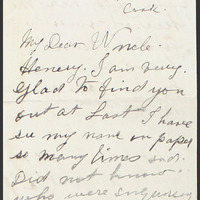 Cork.
My Dear Uncle.
Henery. I am very.
Glad to find you
out at Last I have
see my name on paper
so many times and.
Did not know.
who were inquiring